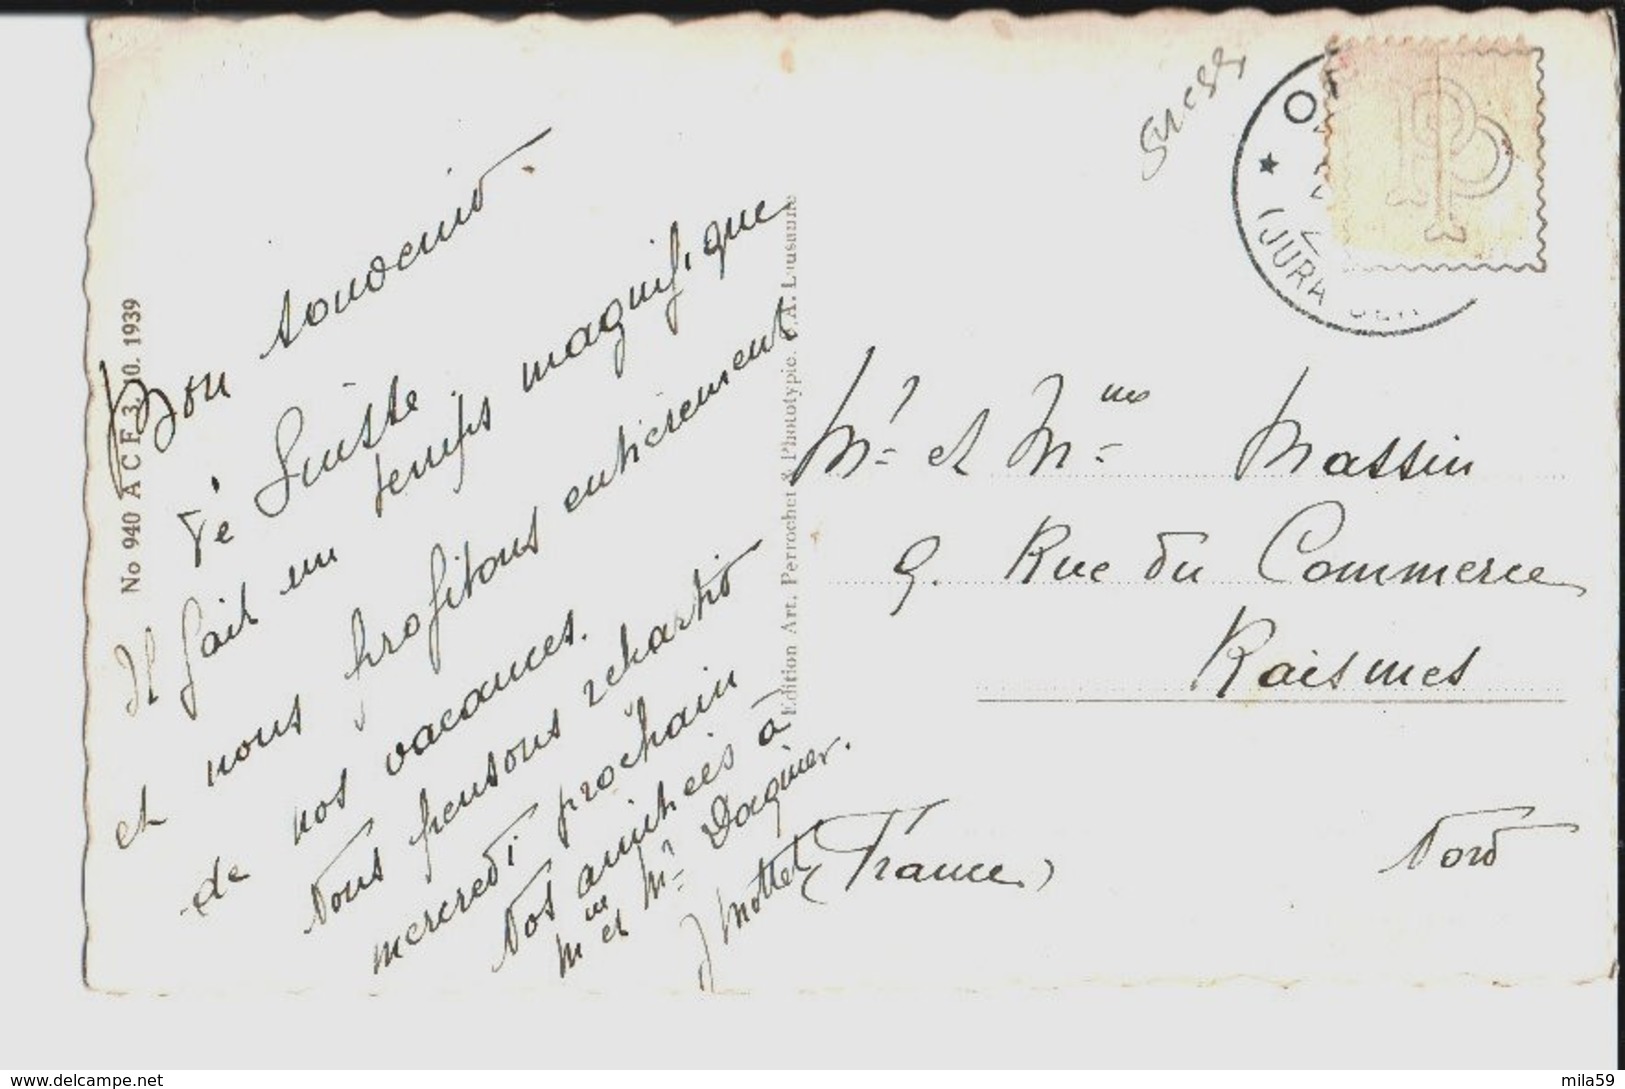 Bon souvenir
de Suisse
Il fait un temps magnifique
et nous profitons entièrement
de nos vacances.
Nous pensons repartir
mercredi prochain
Nos amitiés à
Mme et Mr Daguier.
J Mottet
No 940 A C F 3. 10. 1939
Edition Art. Perrochet & Phototypie. S.A. Lausanne
Suisse
(JURA BER
PP
Mr et Mme Massin
9. Rue du Commerce
Raismes
(France) Nord
www.delcampe.net
mila59